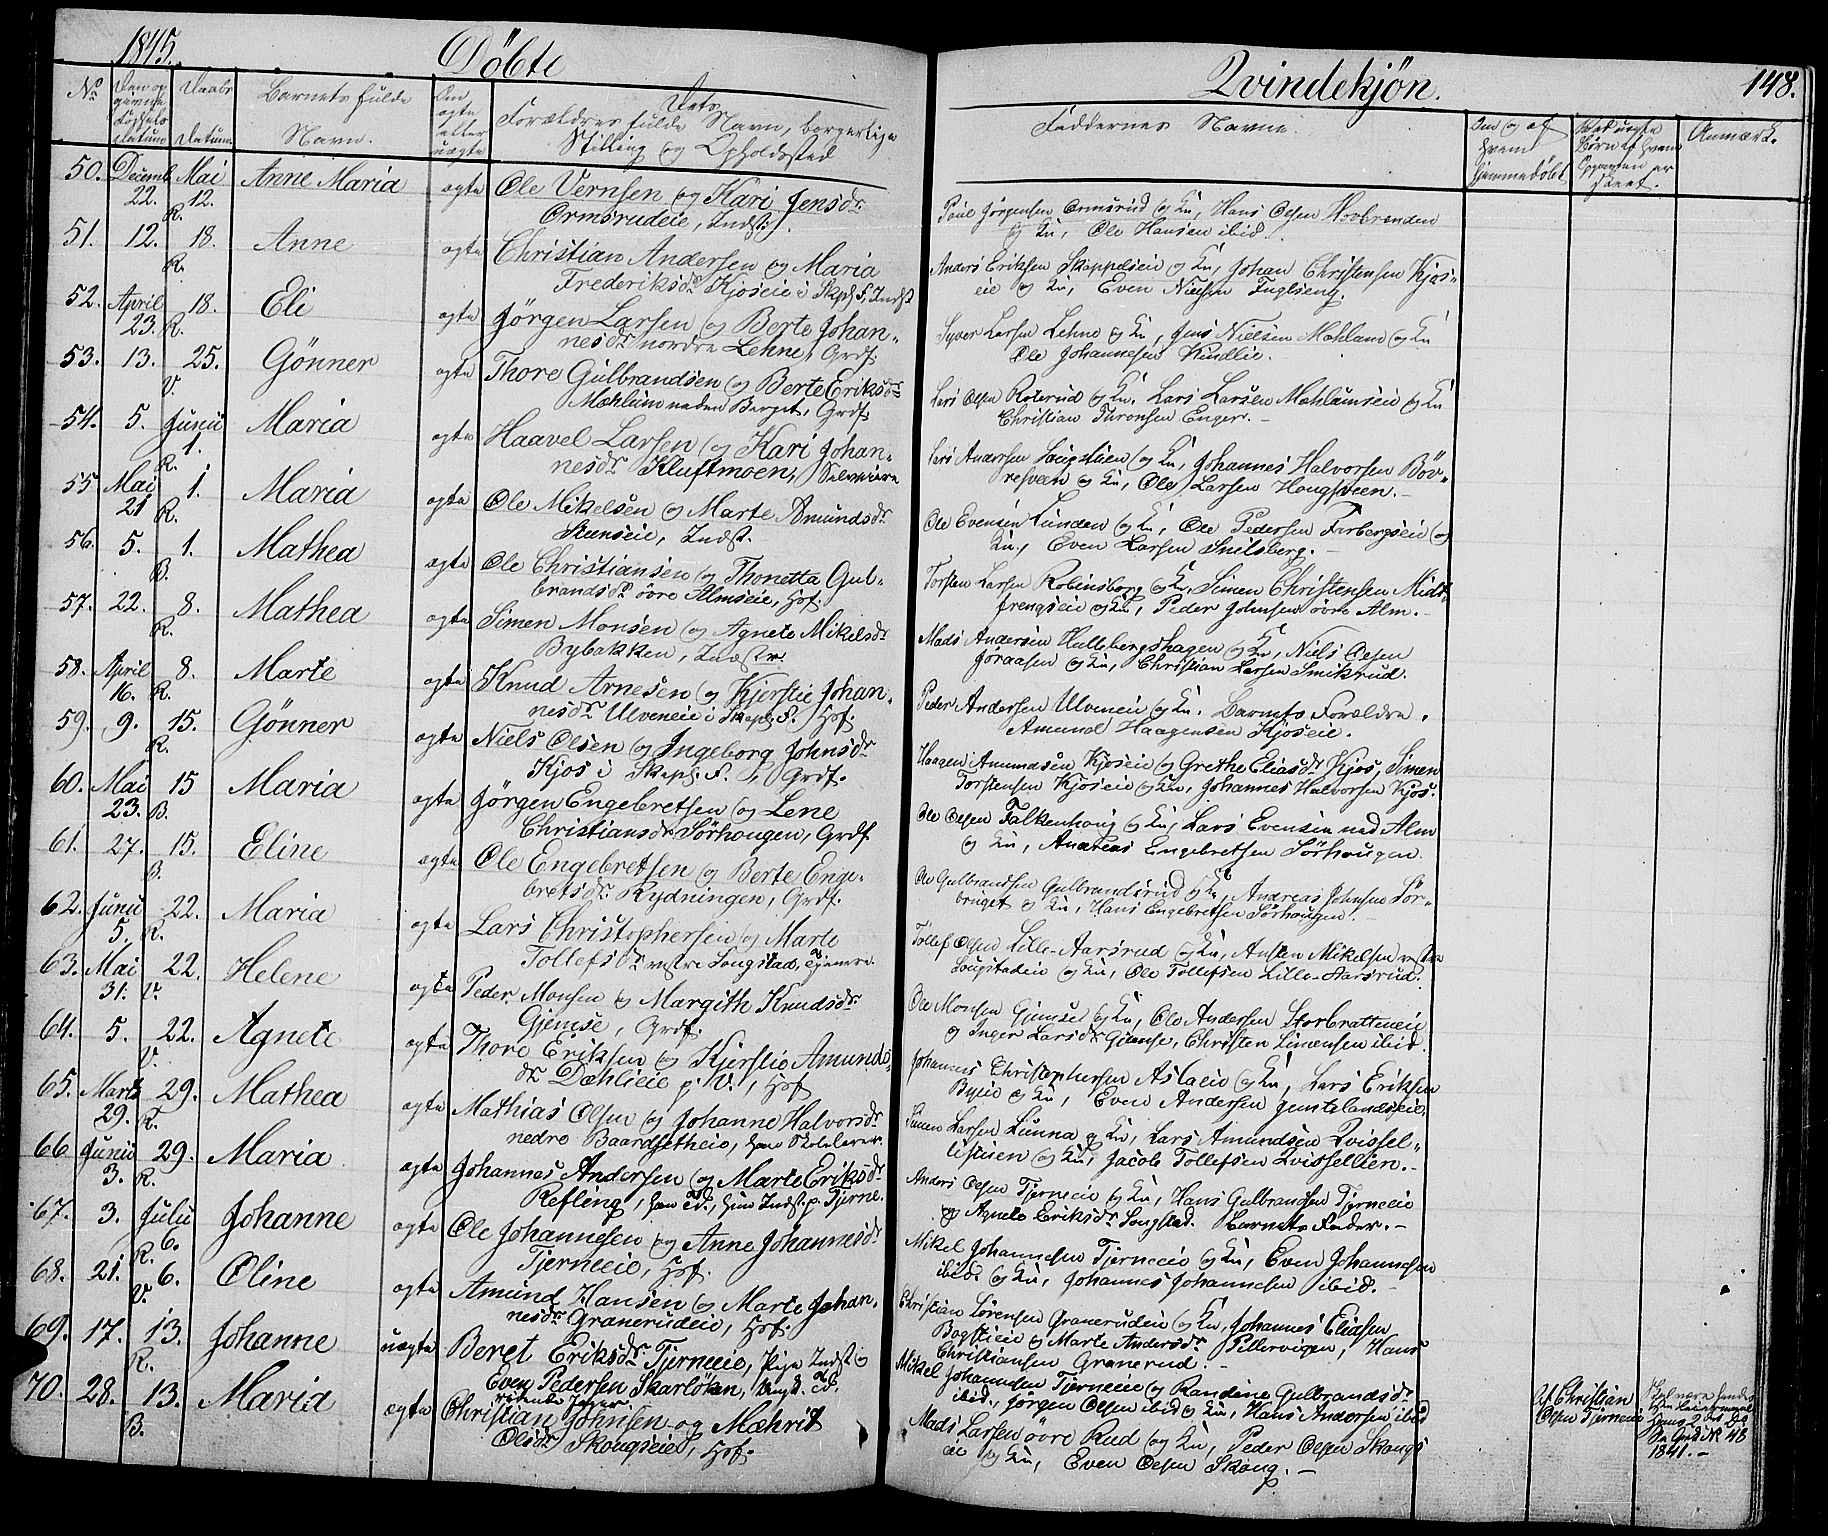 1845. Döbte Qvindekjön. 148.
No Den opgivne Fødsels Datum Daabs Datum Barnets fulde Navn. Om ægte eller uægte Dets Forældres fulde Navn, borgerlige Stilling og Opholdssted Faddernes Navne. Om og af hvem hjemmedøbt Anmærk.
50. Decemb 22. Mai 12. R. Anne Maria ægte Ole Vernsen og Kari Jensdr
Ormsrudeie, Indst.
Poul Jörgensen Ormsrud og Ku, Hans Olsen Hovbrenden
og Ku, Ole Hansen ibid.
51. 12. 18. R. Anne ægte Christian Andersen og Maria
Frederiksdr Kjoseie i Skpl. F, Indst
Anders Eriksen Skappelseie og Ku, Johan Christensen Kjos-
eie og Ku, Even Nielsen Fuglseng.
52. April 23. 18. R. Eli ægte Jörgen Larsen og Berte Johan-
nesdr nordre Lehne, Grdf.
Syver Larsen Lehne og Ku, Jens Nielsen Mæhlum og Ku
Ole Johannesen Kindlie.
53. 13. 25. V. Gönner ægte Thore Gulbrandsen og Berte Eriksdr
Mæhlum neden Berget, Grdf.
Lars Olsen Roterud og Ku. Lars Larsen Mæhlumseie og Ku
Christian Thronsen Enger.
54. 5. Junii 1. R. Maria ægte Haavel Larsen og Kari Johan-
nesdr Kluftmoen, Selveiere
Lars Andersen Sougstien og Ku, Johannes Halvorsen Böv-
resveen og Ku, Ole Larsen Hougsveen.
55 Mai 21 1. R. Maria ægte Ole Mikelsen og Marte Amundsdr
Steenseie, Indst.
Ole Evensen Lunden og Ku, Ole Pedersen Forbergseie og
Ku., Even Larsen Snilsberg.
56. 5. 1. B. Mathea ægte Ole Christiansen og Thonetta Gul-
brandsdr övre Almseie, Hsf.
Torsten Larsen Robinsborg og Ku, Simen Christensen Midt-
frengseie og Ku, Peder Johnsen övre Alm.
57. 22. 8. R. Mathea ægte Simen Monsen og Agnete Mikelsdr
Bybakken, Indstr.
Mads Andersen Hallebergshagen og Ku, Niels Olsen
Jöraasen og Ku, Christian Larsen Smiksrud.
58. April 16. 8. R. Marte ægte Knud Arnesen og Kjerstie Johan-
nesdr Ulveneie i Skapl. F. Hsf.
Peder Andersen Ulveneie og Ku. Barnets Forældre.
Amund Haagensen Kjoseie.
59. 9. 15. R. Gönner ægte Niels Olsen og Ingeborg Johnsdr
Kjos i Skapl. F., Grdf.
Haagen Amundsen Kjoseie og Grethe Eliasdr Kjos, Simen
Torstensen Kjoseie og Ku, Johannes Halvorsen Kjos.
60. Mai 23. 15 B. Maria ægte Jörgen Engebretsen og Lene
Christiansdr Sörhougen, Grdf.
Ole Olsen Falkenhoug og Ku, Lars Evensen ned Alm
og Ku, Andreas Engebretsen Sörhougen.
61. 27. 15. B. Eline ægte Ole Engebretsen og Berte Enge-
bretsdr Rydningen, Grdf.
Ole Gulbrandsen Gulbrandsrud og Ku, Andreas Johnsen Sör-
bruget og Ku, Hans Engebretsen Sörhougen.
62. Junii 5. 22. R. Maria ægte Lars Christophersen og Marte
Tollefsdr vestre Sougstad, Tjenere.
Tollef Olsen Lille-Aarsrud og Ku, Austen Mikelsen vestre
Sougstadeie og Ku, Ole Tollefsen Lille-Aarsrud.
63. Mai 31. 22. V. Helene ægte Peder Monsen og Margith Knudsdr
Gjemse, Grdf.
Ole Monsen Gjemse og Ku, Ole Andersen Storbratteneie
og Inger Larsdr Gjemse, Christen Simensen ibid.
64. 5. 22. V. Agnete ægte Thore Eriksen og Kjerstie Amunds-
dr Dæhlieie p. V., Hsf
Johannes Christophersen Aslaeie og Ku, Lars Eriksen
Byeie og Ku, Even Andersen Jenstelandseie.
65. Marts 29. 29. R. Mathea ægte Mathias Olsen og Johanne Halvorsdr
nedre Baardsetheie, ham Skolelærer.
Simen Larsen Lunna og Ku, Lars Amundsen Qvissel-
listuen og Ku, Jacob Tollefsen Qvissellien.
66 Junii 3. 29. R. Maria ægte Johannes Andersen og Marte Eriksdr
Refling, han ibid., hun Indst. p. Tjerne.
Anders Olsen Tjerneeie og Ku, Hans Gulbrandsen Tjerneeie
og Agnete Eriksdr Sougstad. Barnets Fader.
67. 3. Julii 6. R. Johanne ægte Ole Johannesen og Anne Johannesdr
Tjerneeie, Hsf.
Mikel Johannesen Tjerneeie og Ku, Even Johannesen
ibid. og Ku, Johannes Johannesen ibid.
68. 21. 6. V. Oline ægte Amund Hansen og Marte Johan-
nesdr Granerudeie, Hsf.
Christian Sörensen Granerudeie og Ku, Johannes Eliasen
Bagstieie og Marte Andersdr Pillervigen, Hans
Christiansen Granerud.
69. 17. 13. R. Johanne uægte Beret Eriksdr Tjerneeie, Pige Indst og
Even Pedersen Skarlöken, Ungk. ibid.
Mikel Johannesen Tjerneeie og Randine Gulbrandsdr
ibid., Jörgen Olsen ibid og Ku, Hans Andersen ibid
Af Christian
Olsen Tjerneeie
1841.
70. 28. 13. B. Maria ægte Christian Johnsen og Mæhrit
Olsdr Skougseie, Hsf.
Mads Larsen övre Rud og Ku, Peder Olsen Skougs
eie og Ku, Even Olsen Skoug.